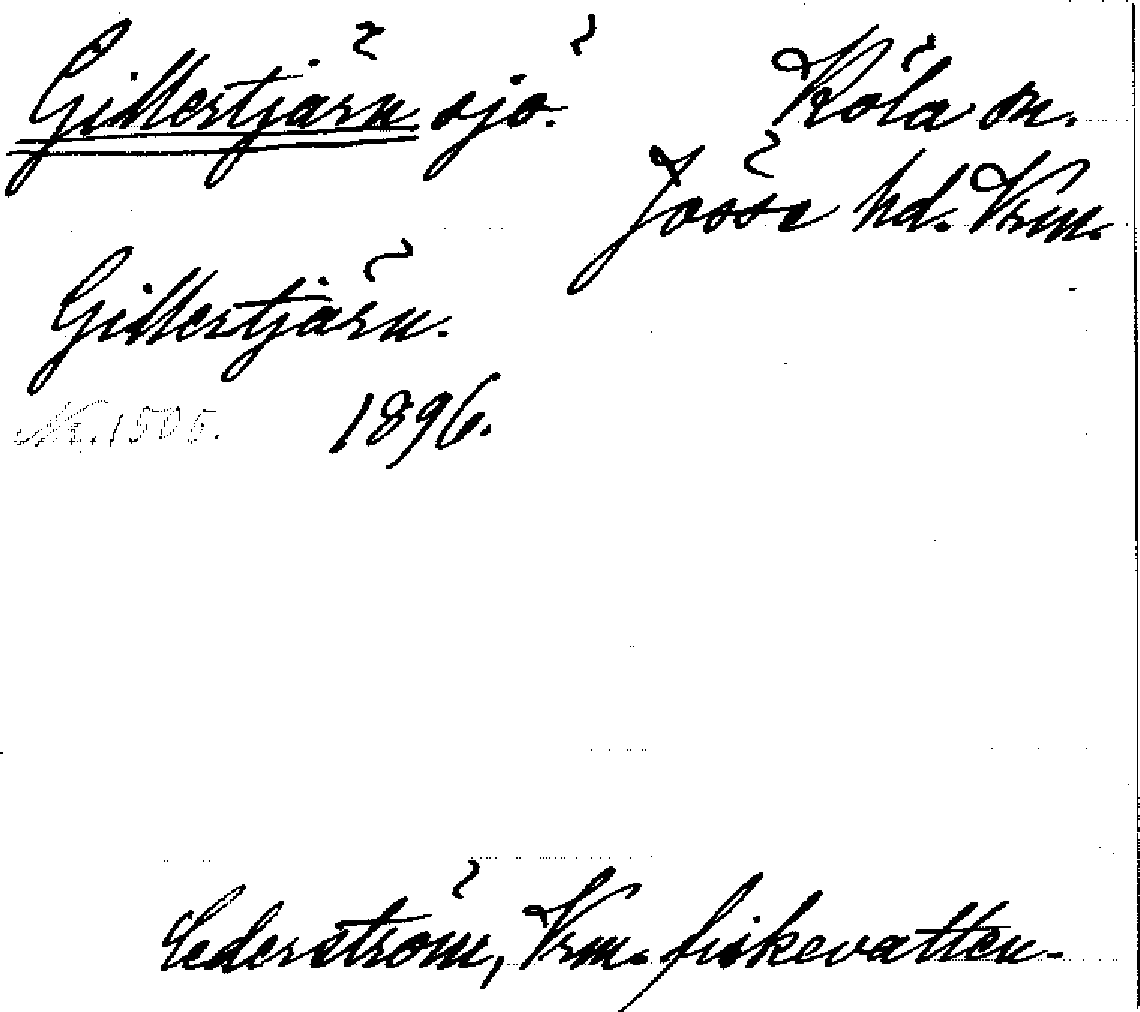 Gillertjärn sjö. Köla sn.
Jösse hd. Vrm.
Gillertjärn.
1896.
Cederström, Vrm. fiskevatten.